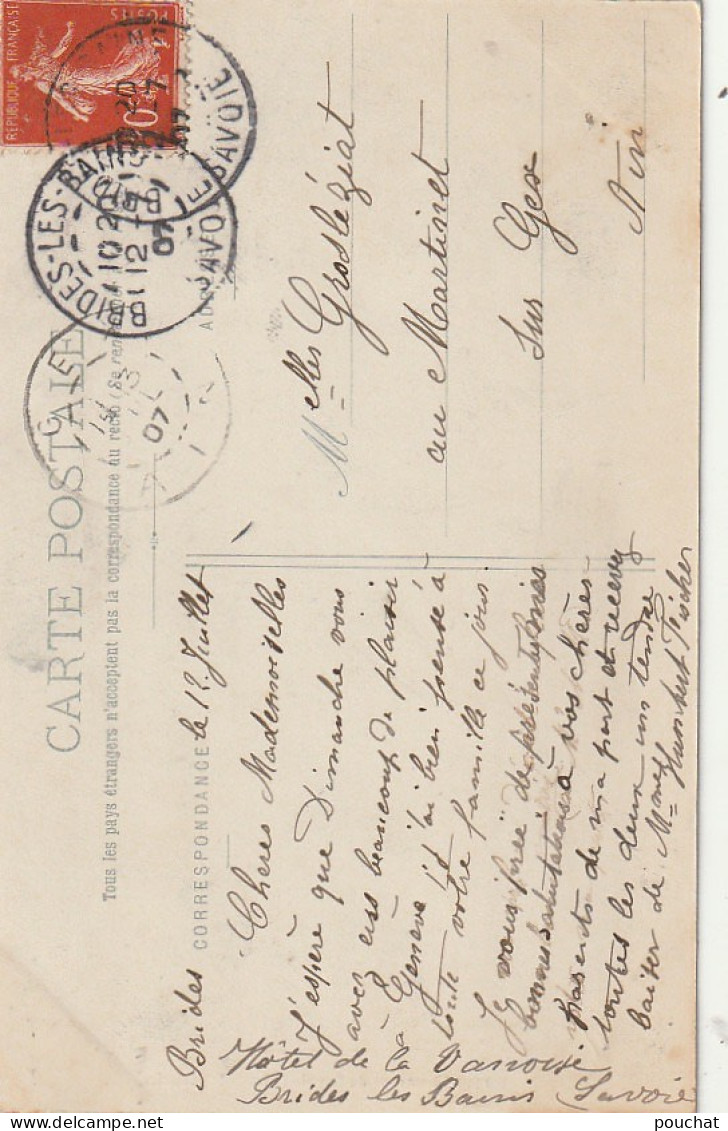 CARTE POSTALE
Tous les pays étrangers n'acceptent pas la correspondance au recto (Se ren
CORRESPONDANCE
Brides le 12 Juillet
Cheres Mademoiselles
J'espère que Dimanche vous
avez eus beaucoup de plaisir
à Genève j'ai bien pensée à
toute votre famille ce jour
Je vous prie de présenter mes
bonnes salutations à vos chères
parents de ma part et recevez
toutes les deux un tendre
baiser de Mme Humbert Pischer
Hôtel de la Vanoise
Brides les Bains (Savoie)
Melles Groslégiat
au Martinet
Sus Gex
Ain
REPUBLIQUE FRANÇAISE
POSTES
BRIDES-LES-BAINS
SAVOIE
10 20
12 -7
07
SAVOIE
07
www.delcampe.net
pouchat